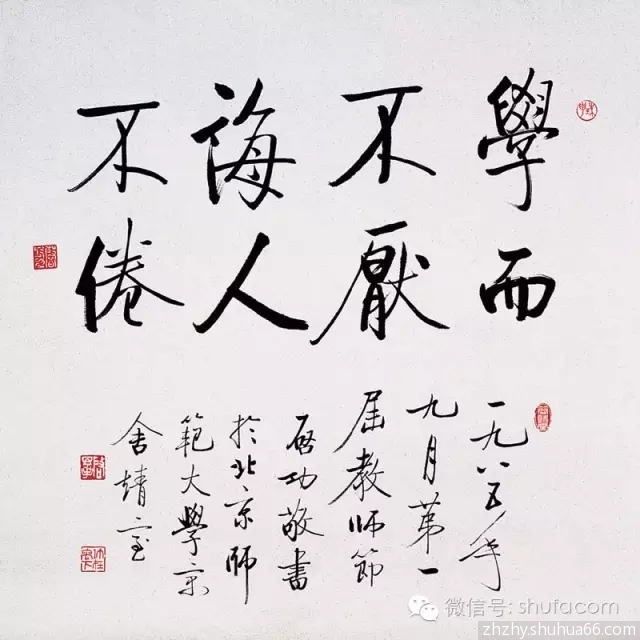 學而
不厭
誨人
不倦
一九八五年
九月第一
屆教師節
啓功敬書
於北京師
範大學
舍
微信号: shufacom
zhzhy.shuhua66.com